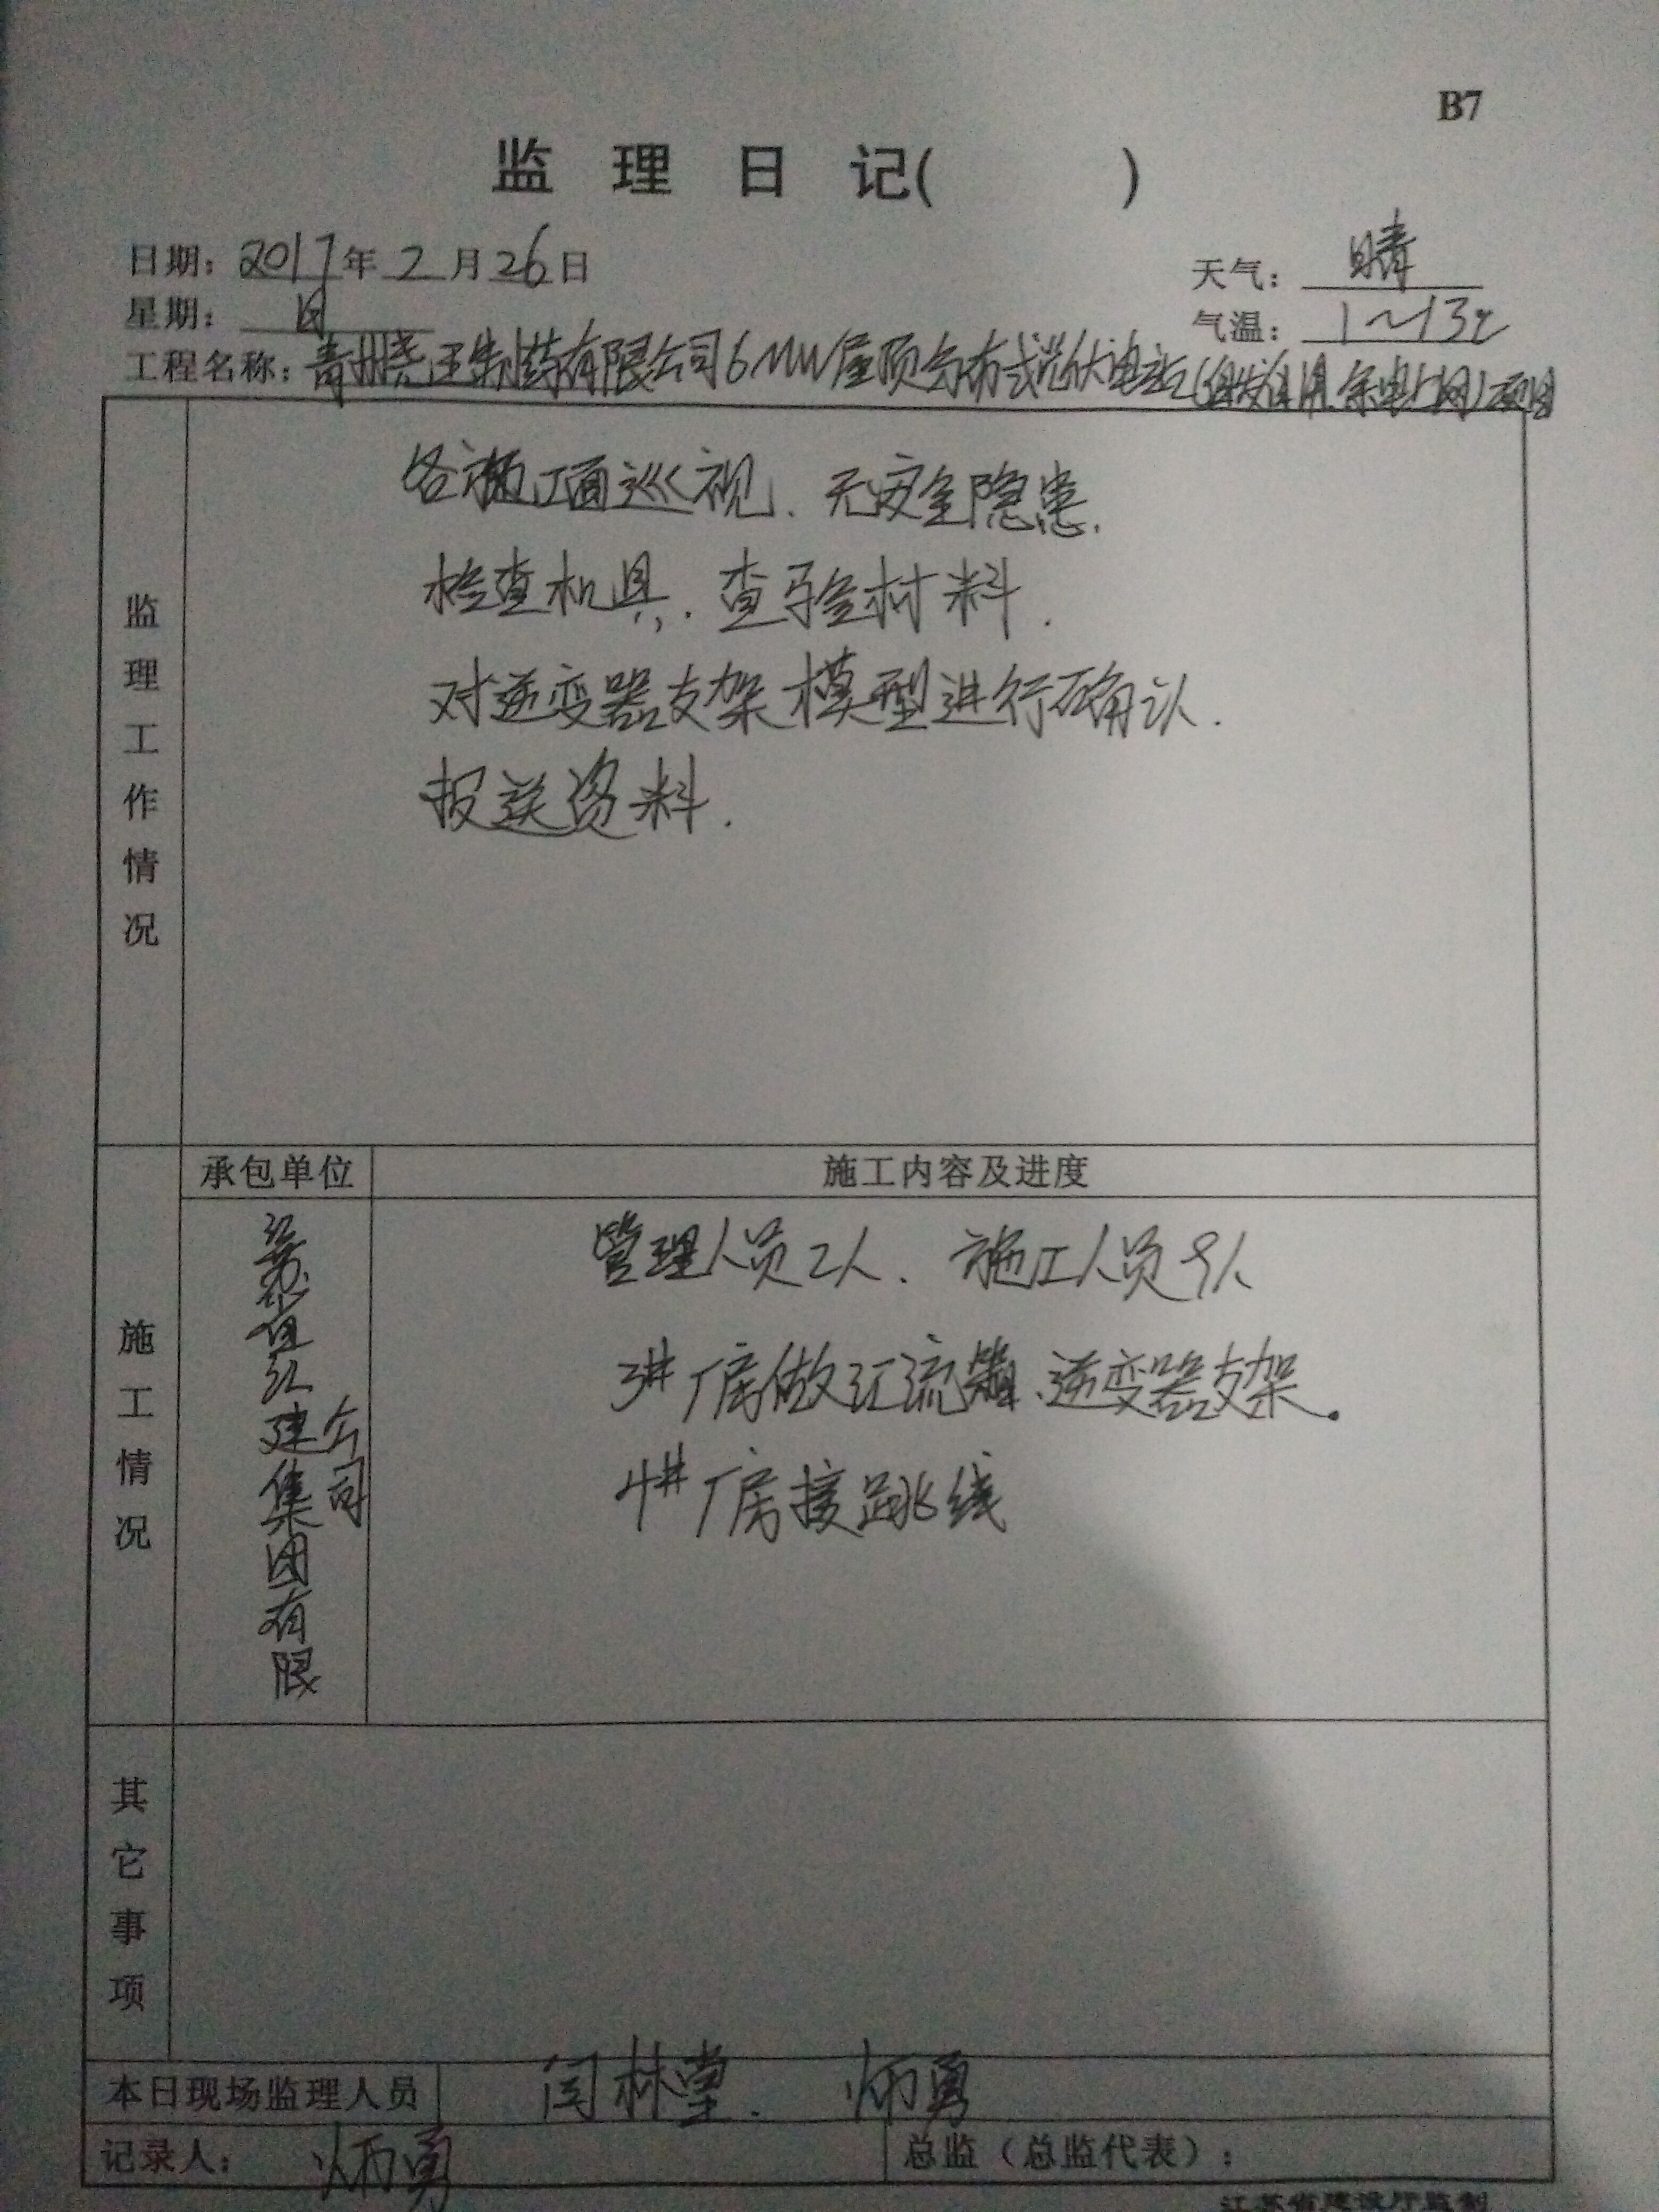 B7
监 理 日 记( )
日期：2017年2月26日
天气：晴
星期：日
气温：1～13℃
工程名称：青州尧王制药有限公司6MW屋顶分布式光伏电站(自发自用、余电上网)项目
监理工作情况
各施工面巡视、无安全隐患.
检查机具、查验材料.
对逆变器支架模型进行确认.
报送资料.
施工情况
承包单位
施工内容及进度
集团有限公司
管理人员2人、施工人员9人
3#厂房做汇流箱、逆变器支架。
4#厂房接跳线
其它事项
本日现场监理人员
闫林堂、 炳勇
记录人： 炳勇
总监（总监代表）：
江苏省建设厅监制